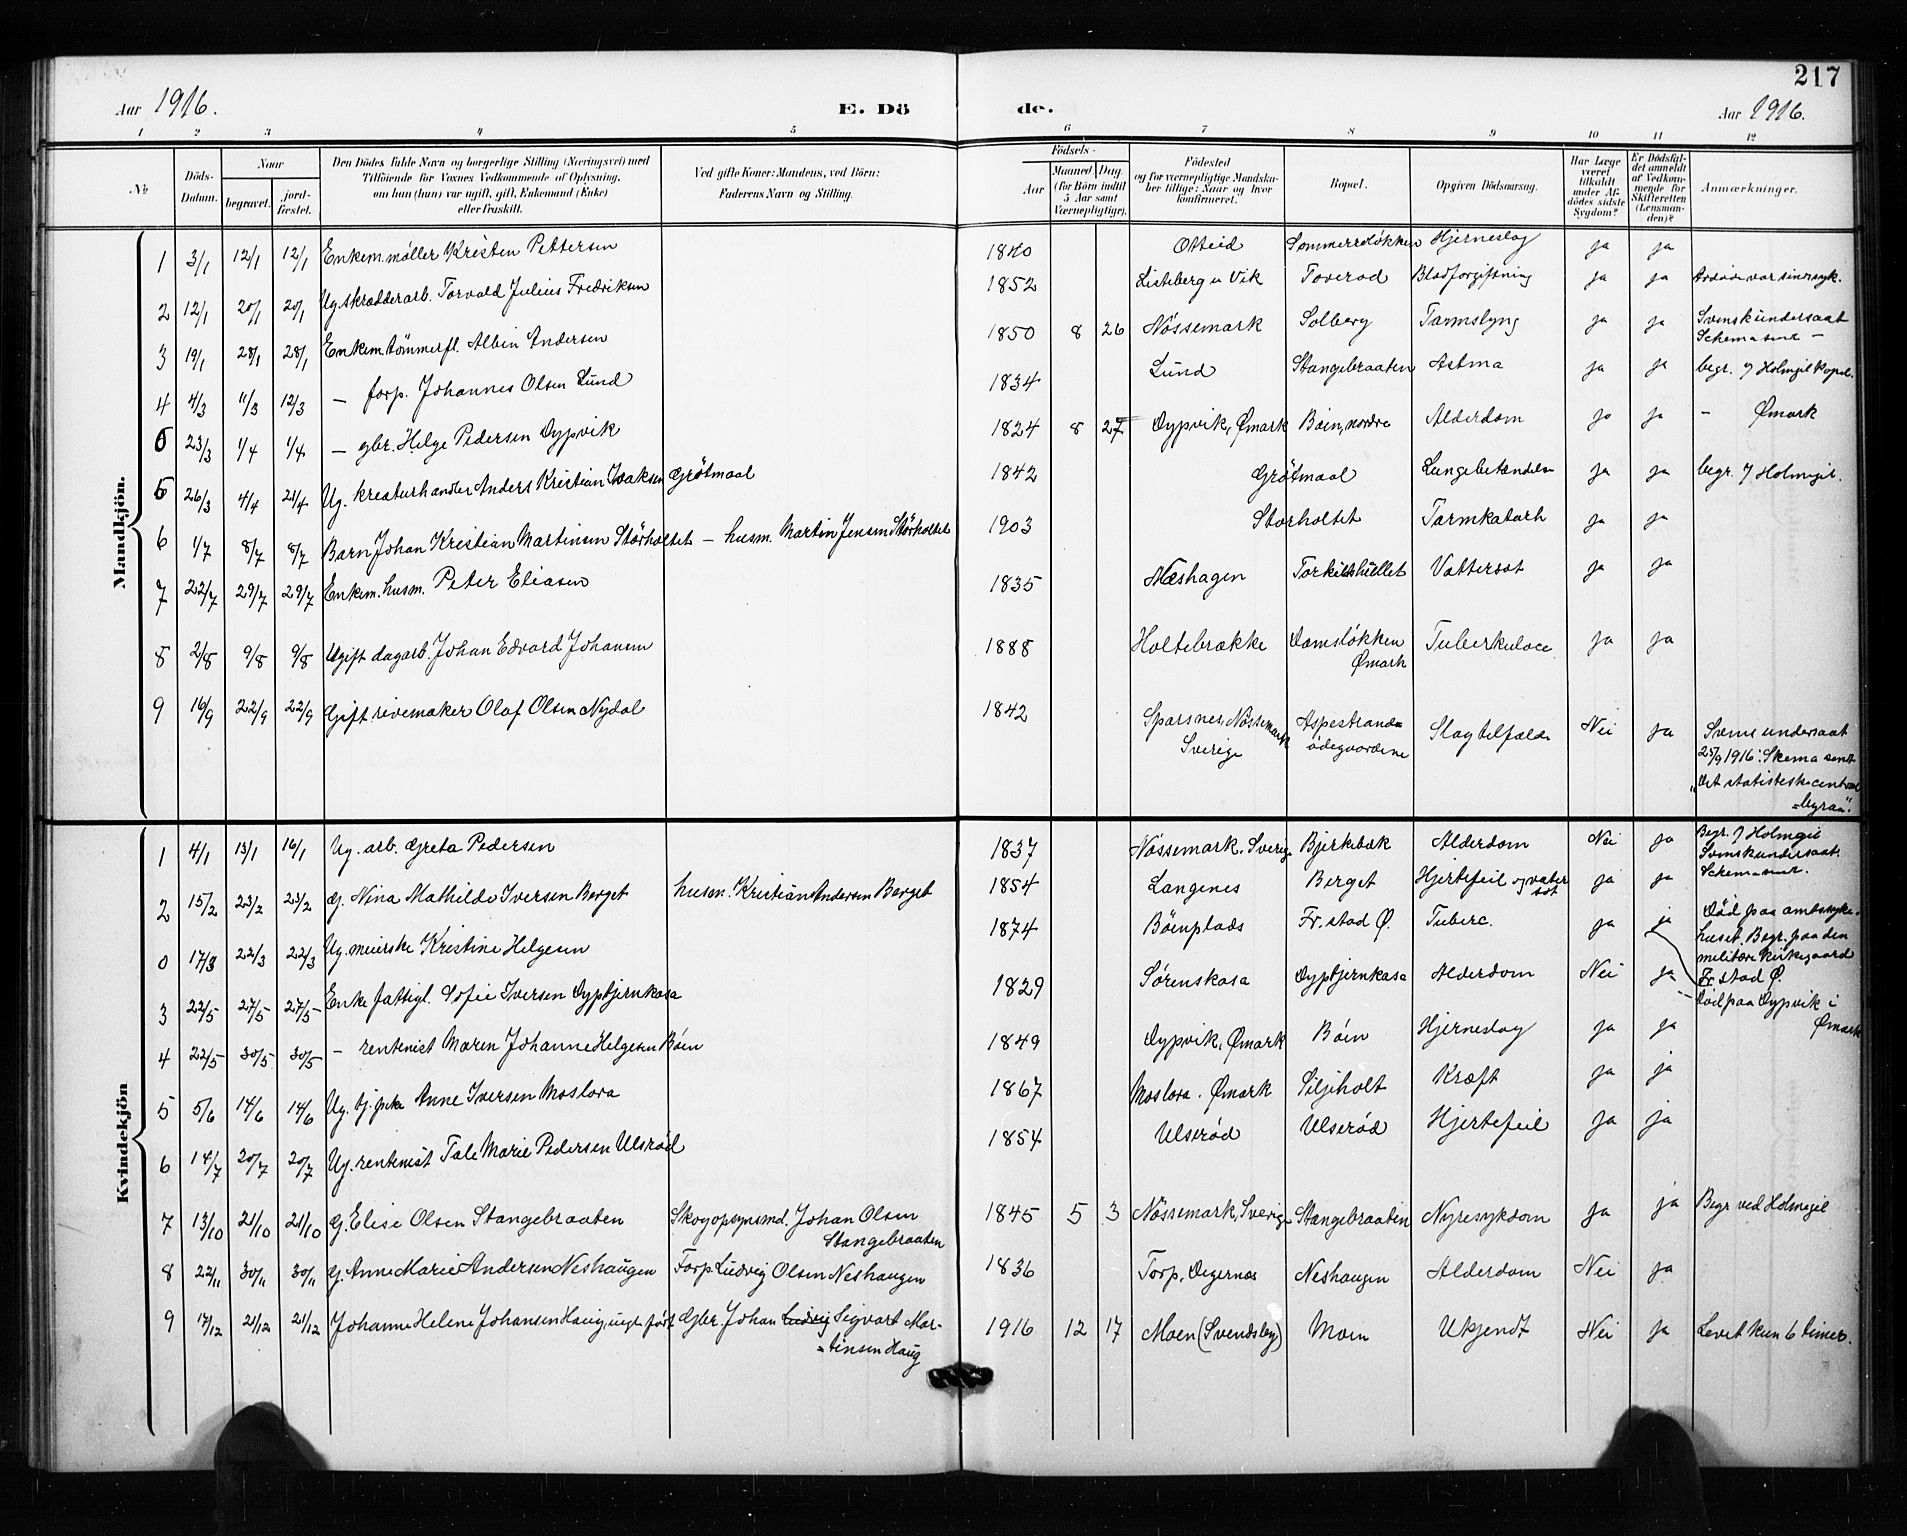 217
Aar 1916. E. Dö de. Aar 1916.
1 2 3 4 5 6 7 8 9 10 11 12
№ Döds-Datum. Naar begravet. jord-fæstet. Den Dödes fulde Navn og borgerlige Stilling (Næringsvei) med Tilföiende for Voxnes Vedkommende af Oplysning, om han (hun) var ugift, gift, Enkemand (Enke) eller fraskilt. Ved gifte Koner: Mandens, ved Börn: Faderens Navn og Stilling. Födsels- Aar Maaned. Dag. (for Börn indtil 5 Aar samt Værnepligtige). Födested og for værnepligtige Mandskaber tillige: Naar og hvor konfirmeret. Bopæl. Opgiven Dödsaarsag. Har Læge været tilkaldt under Afdödes sidste Sygdom? Er Dödsfaldet anmeldt af Vedkommende for Skifteretten (Lensmanden)? Anmærkninger.
Mandkjön.
1 3/1 12/1 12/1 Enkem. møller Kristen Pettersen 1840 Otteid Sommerroløkken Hjerneslag ja ja
2 12/1 20/1 20/1 Ug. skrædderarb. Torvald Julius Fredriksen 1852 Listeberg u Vik Toverod Blodforgiftning ja ja var sinnsyk.
3 19/1 28/1 28/1 Enkem. tømmerfl. Albin Andersen 1850 8 26 Nössemark Solberg Tarmslyng ja ja Svensk undersaat
Schema sendt –
4 4/3 11/3 12/3 — forp. Johannes Olsen Lund 1834 Lund Stangebraaten Astma ja ja begr. v/ Holmgil kapel.
5 23/3 1/4 1/4 — gbr. Helge Pedersen Dypvik 1824 8 27 Dypvik, Ømark Bøen, nordre Alderdom ja ja – Ømark
5 26/3 4/4 21/4 Ug. kreaturhandler Anders Kristian Isaksen Grøtmaal 1842 Grøtmaal Lungebetændelse ja ja begr. v/ Holmegil.
6 1/7 8/7 8/7 Barn Johan Kristian Martinsen Størholtet – husm. Martin Jensen Størholtet 1903 Storholtet Tarmkatarh ja ja
7 22/7 29/7 29/7 Enkem. husm. Peter Eliasen 1835 Næshagen Torkilshullet Vattersot ja ja
8 2/8 9/8 9/8 Ugift dagarb. Johan Edvard Johansen 1888 Holtebrække Damsløkken
Ømark Tuberkulose ja ja
9 16/9 22/9 22/9 Gift rivemaker Olaf Olsen Nydal 1842 Sparsnes, Nössemark
Sverige Aspestrand=
ødegaardene Slagtilfælde Nei ja Svensk undersaat
25/9 1916: Skema sendt
"Det statistiske central
=byraa".
Kvindekjön
1 4/1 13/1 16/1 Ug. arb. Greta Pedersen 1837 Nössemark, Sverige Bjerkebæk Alderdom Nei ja Begr. v/ Holmgil
Svensk undersaat.
Schema sendt.
2 15/2 23/2 23/2 G. Nina Mathilde Iversen Berget husm. Kristian Andersen Berget 1854 Langenes Berget Hjertefeil og vatersot ja ja
0 17/3 22/3 22/3 Ug. meierske Kristine Helgesen 1874 Bøenplads Fr.stad Ø. Tuberc. ja ja Död paa amtssyke-
huset. Begr. paa den
militære kirkegaard
Fr.stad Ø.
3 22/5 27/5 27/5 Enke fattigl. Sofie Iversen Dyptjernkasa 1829 Sørenskasa Dyptjernkasa Alderdom Nei ja
4 22/5 30/5 30/5 – rentenist Maren Johanne Helgesen Bøen 1849 Dypvik, Ømark Bøen Hjerneslag ja ja Död paa Dypvik i
Ømark
5 5/6 14/6 14/6 Ug. tj. pike Anne Iversen Moslora 1867 Moslora. Ømark Siljeholt Kræft ja ja
6 14/7 20/7 20/7 Ug. rentenist Tale Marie Pedersen Ulsrød 1854 Ulserød Ulserød Hjertefeil ja ja
7 13/10 21/10 21/10 G. Elise Olsen Stangebraaten Skogopsynsmd. Johan Olsen
Stangebraaten 1845 5 3 Nössemark, Sverige Stangebraaten Nyresykdom ja ja Begr. ved Holmegil
8 22/11 30/11 30/11 G. Anne Marie Andersen Neshaugen Forp. Ludvig Olsen Neshaugen 1836 Torp, Degernæs Neshaugen Alderdom Nei ja
9 17/12 21/12 21/12 Johanne Helene Johansen Haug, Gbr. Johan Ludvig Sigvart Mar-
=tinsen Haug 1916 12 17 Moen (Svendsby) Moen Ukjendt Nei ja Levet kun 6 timer.